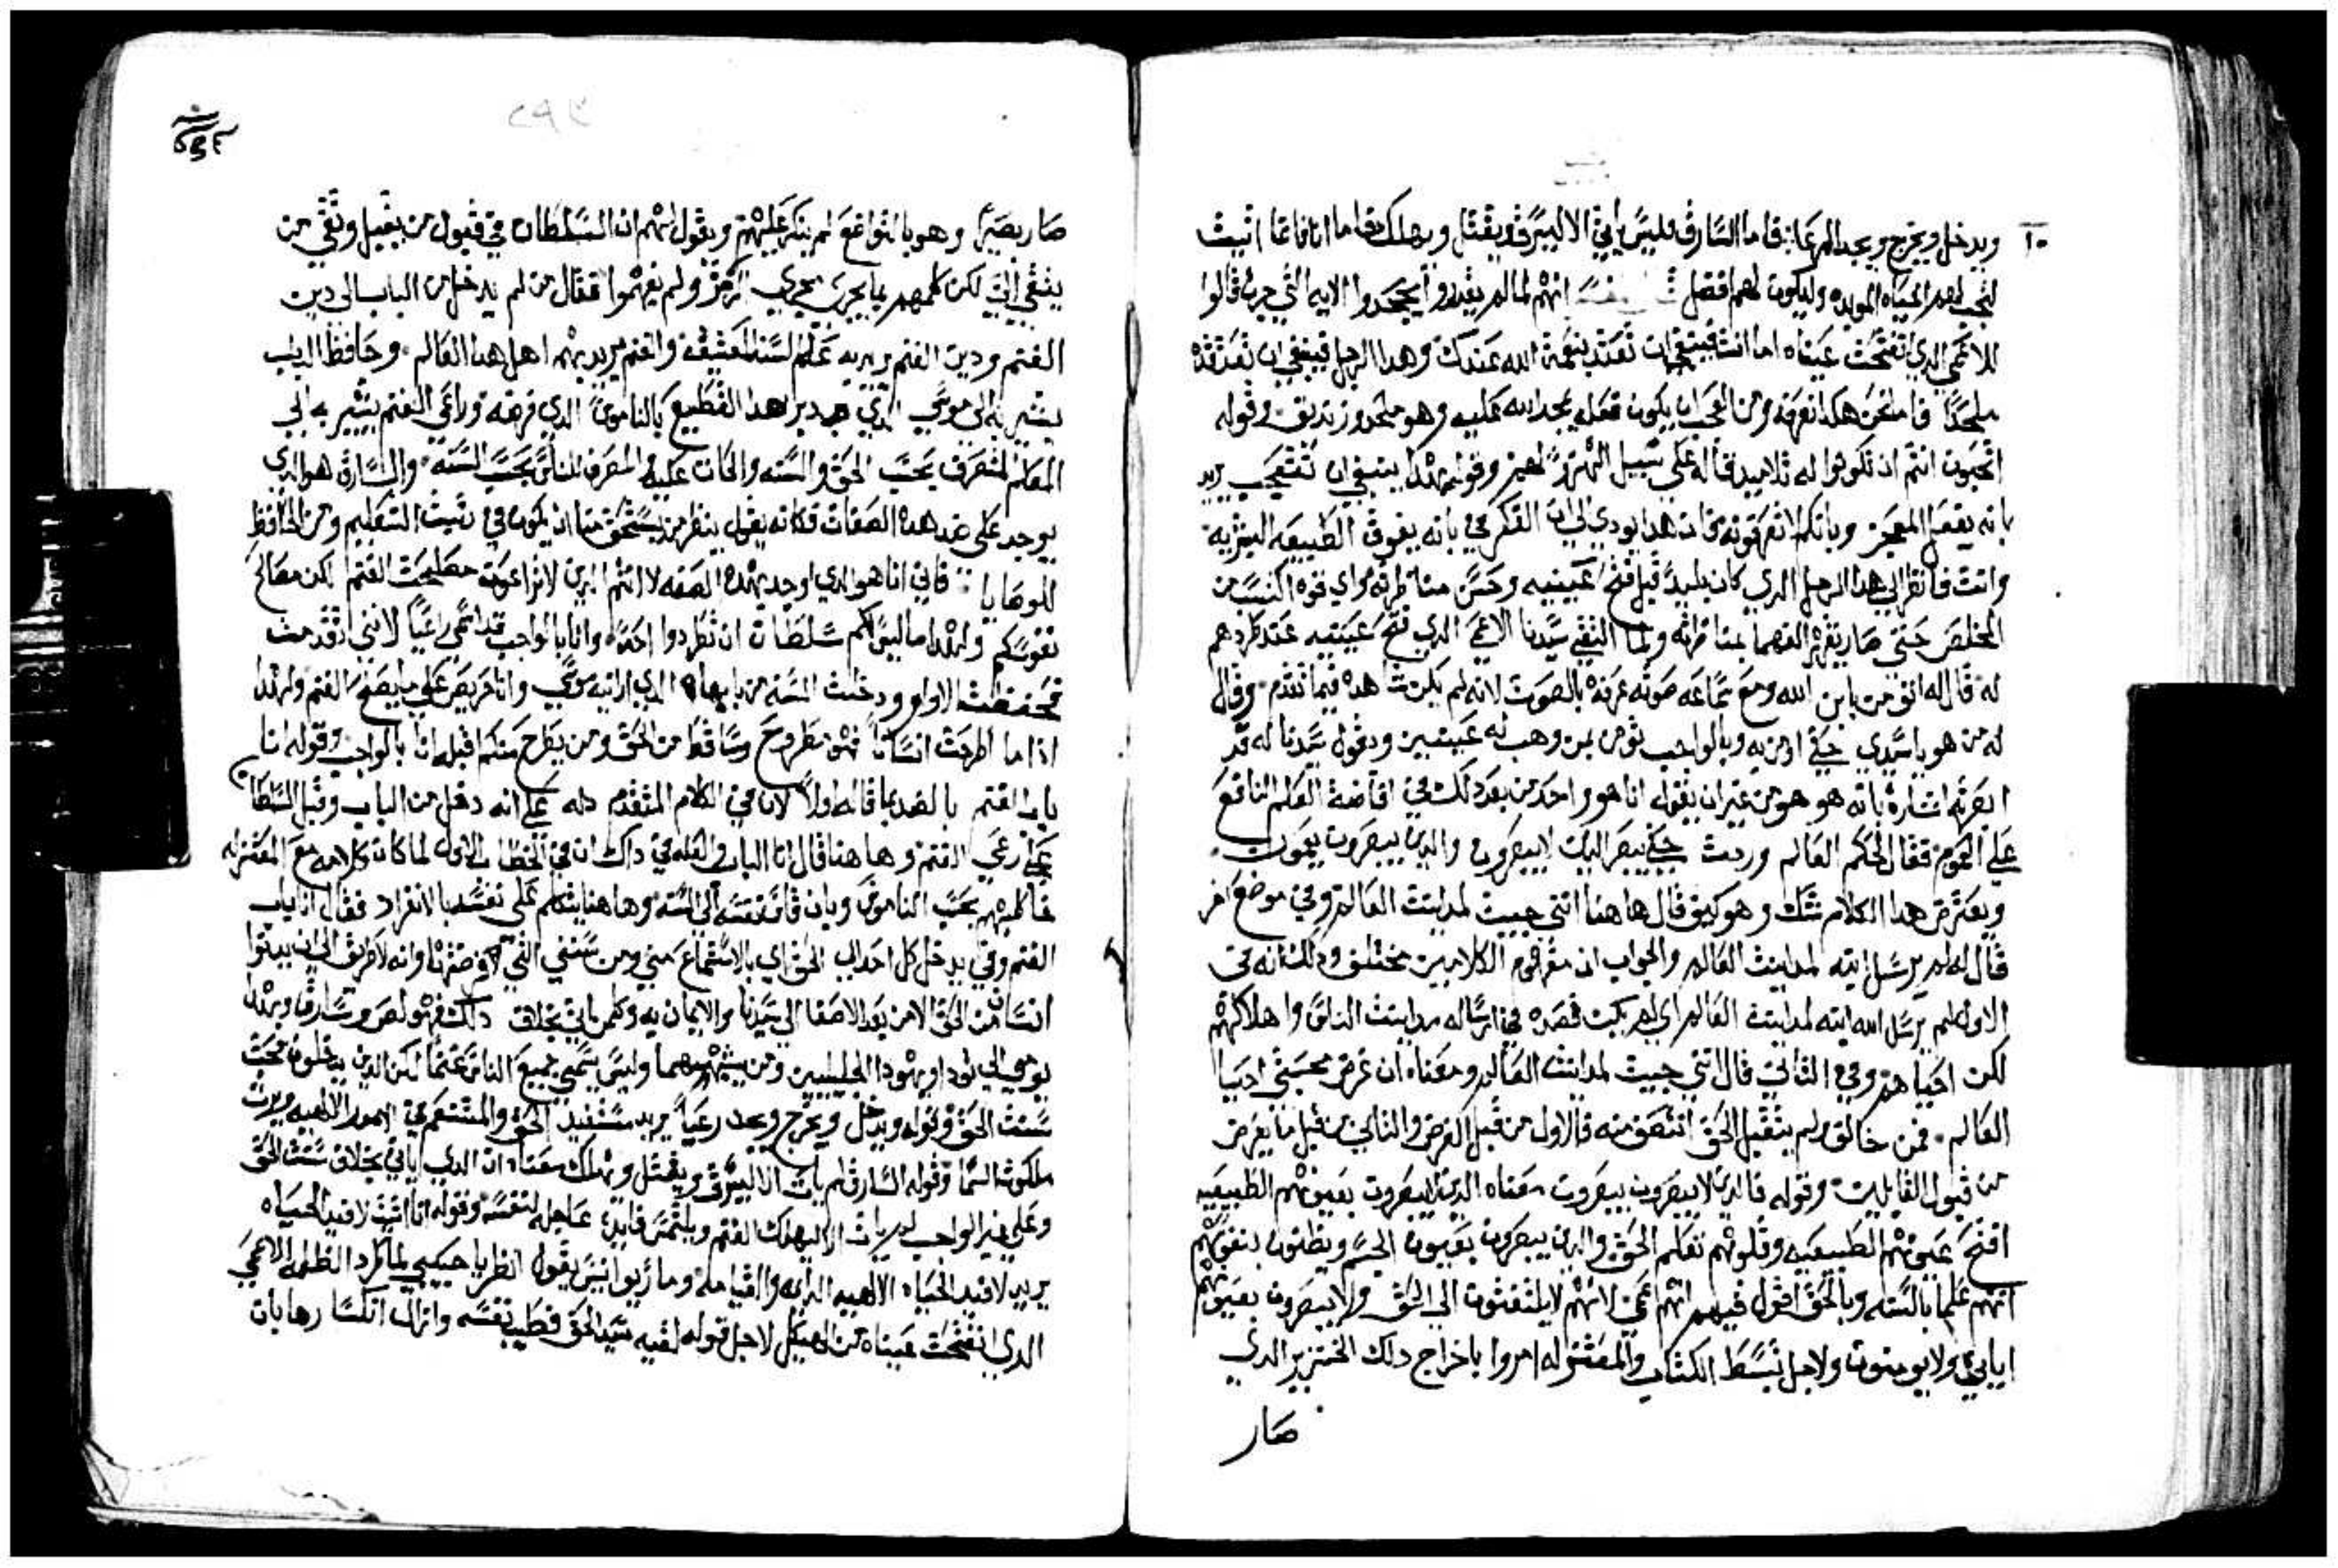 ١٠
ويدخل ويخرج ويجد المرعا فاما السارق فليس ياتي الا ليسرق ويقتل ويهلك فاما انا فانما اتيت
لتجب لهم الحياه الموبده وليكون لهم فضل انهم لما لم يقدروا يجحدوا الايه التي جرت قالوا
للاعمى الذي انفتحت عيناه اما انت فينبغي ان تعتد بنعمة الله عندك وهدا الرجل فينبغي ان تعتقده
ملحدًا فاما نحن هكدا نعرفه ومن العجب ان يكون فعله يجد الله عليه وهو ملحد وزنديق وقوله
اتحبون انتم ان تكونوا له تلاميد قاله على سبيل التهزي لهم وقوله بهدا ينبغي ان نتعجب يريد
بانه يفعل المعجز وبانكم لا تعرفونه فان هدا يودي الى ان الفكر في بانه يفوق الطبيعه البشريه
وانت فانظر الى هدا الرجل الدي كان بليد قبل فتح عينيه وحسن مناظرته واي قوه اكتسب من
المخلص حتى صار يقهر الفهما بمناظرته ولما التقى سيدنا الاعمى الدي فتح عينيه عند طردهم
له قال له اتومن بابن الله ومع سماعه صوته عرفه بالصوت لانه لم يكن شاهده فيما تقدم وقال
له من هو يا سيدي حتى اومن به وبالواجب يومن بمن وهب له عينين ويقول سيدنا له قد
ابصرته اشارة بانه هو هو من غير ان يقول انا هو واخد من بعد دلك في افاضة العلم النافع
على القوم فقال لحكم العالم وردت حتى يبصر الدين لا يبصرون والدين يبصرون يعمون
ويعترض هدا الكلام شك وهو كيف قال ها هنا انني جييت لمداينت العالم وفي موضع اخر
قال له لم يرسل ابنه لمداينت العالم والجواب ان مفهوم الكلامين مختلف ودلك انه في
الاول لم يرسل الله ابنه لمداينت العالم اي لم يكن قصده في ارساله مداينت الناس واهلاكهم
لكن احياهم وفي الثاني قال انني جييت لمداينت العالم ومعناه ان غرض مجيي احيا
العالم فمن خالف ولم يتقبل الحق انتصف منه فالاول من قبل الغرض والثاني من قبل ما يعرض
من قبول القابلين وقوله فالدين لا يبصرون يبصرون معناه الدين لا يبصرون بعيونهم الطبيعيه
افتح عيونهم الطبيعيه وقلوبهم تعلم الحق والدين يبصرون بعيون الجسم ويظنون بنفوسهم
انهم علما بالسنه وبالحق اقول فيهم انهم عمي لانهم لا يلتفتون الى الحق ولا يبصرون بعيونهم
اياتي ولا يومنون ولاجل تبسط الكتاب والمعتزله امروا باخراج دلك الخنزير الدي
صار
صار بصيرًا وهو بالتواضع لم ينكر عليهم ويقول لهم ان السلطان في قبول من يقبل ونفي من
ينفي الي لكن كلمهم بما يجري مجرى الرمز ولم يفهموا فقال من لم يدخل من الباب الى دير
الغنم ودير الغنم يريد به علم السنه العتيقه والغنم يريد بهم اهل هدا العالم وحافظ الباب
يشير به الى موسى الدي هو دبر هدا القطيع بالناموس الدي فرضه وراعي الغنم يشير به الى
المعلم المتصرف بحسب الحق والسنه والكان عليه المصرف للناس بحسب السنه والسارق هو الدي
يوجد على ضد هده الصفات فكانه يقول ينظر من يستحق منا ان يكون في رتبت التعليم ومن الحافظ
للوصايا فاني انا هو الدي اوجد بهده الصفه لا انتم الدين لا تراعون مصلحت الغنم لكن مصالح
نفوسكم ولهدا ما ليس لكم سلطان ان تطردوا احدًا وانا بالواجب قد اتممي راعيًا لانني تقدمت
فحفظت الاوامر ودخلت السنه من بابها الدي ارانيه موسى وانا حريص على ما يصلح الغنم ولهدا
ادا ما اطرحت انسانًا فهو مطروح وساقط من الحق ومن يطرح منكم اقبله انا بالواجب وقوله انا
باب الغنم بالضد مما قاله اولًا لان في الكلام المتقدم دله على انه دخل من الباب وقبل السلطان
على رعي الغنم وها هنا قال انا الباب والعله في داك ان في الخطاب الاول لما كان كلامه مع المعتزله
خاطبهم بحسب الناموس وبان قاد نفسه الى السنه وها هنا يتكلم على نفسه بالانفراد فقال انا باب
الغنم وفي يدخل كل احد الى الحق اي بالاستماع مني ومن سنني التي افرضها وانه لا طريق الى ان يدنوا
انسان من الحق الا من بعد الاصغا الى سيدنا والايمان به وكلمن ياتي بخلاف دلك فهو لص وسارق وبهدا
يومي الى تودا ويهودا الجليليين ومن يشبههما وليس يسمي جميع الناس غنمًا لكن الدين يدخلون تحت
سنت الحق وقوله ويدخل ويخرج ويجد رعيًا يريد يستفيد الحق والمتنعم في الامور الالهيه ويرث
ملكوت السما وقوله السارق لم يات الا ليسرق ويقتل ويهلك معناه ان الدي ياتي بخلاف سنت الحق
وعلى غير الواجب لم يات الا ليهلك الغنم ويلتمس فايده عاجله لنفسه وقوله انا اتيت لافيد الحياه
يريد لافيد الحياه الالهيه الدايمه والقيامه وماريوانيس يقول انظر يا حبيبي لما طرد الظلمه الاعمى
الدي انفتحت عيناه من الهيكل لاجل قوله لقيه سيد الحق فطيب نفسه وازال انكسارها بان